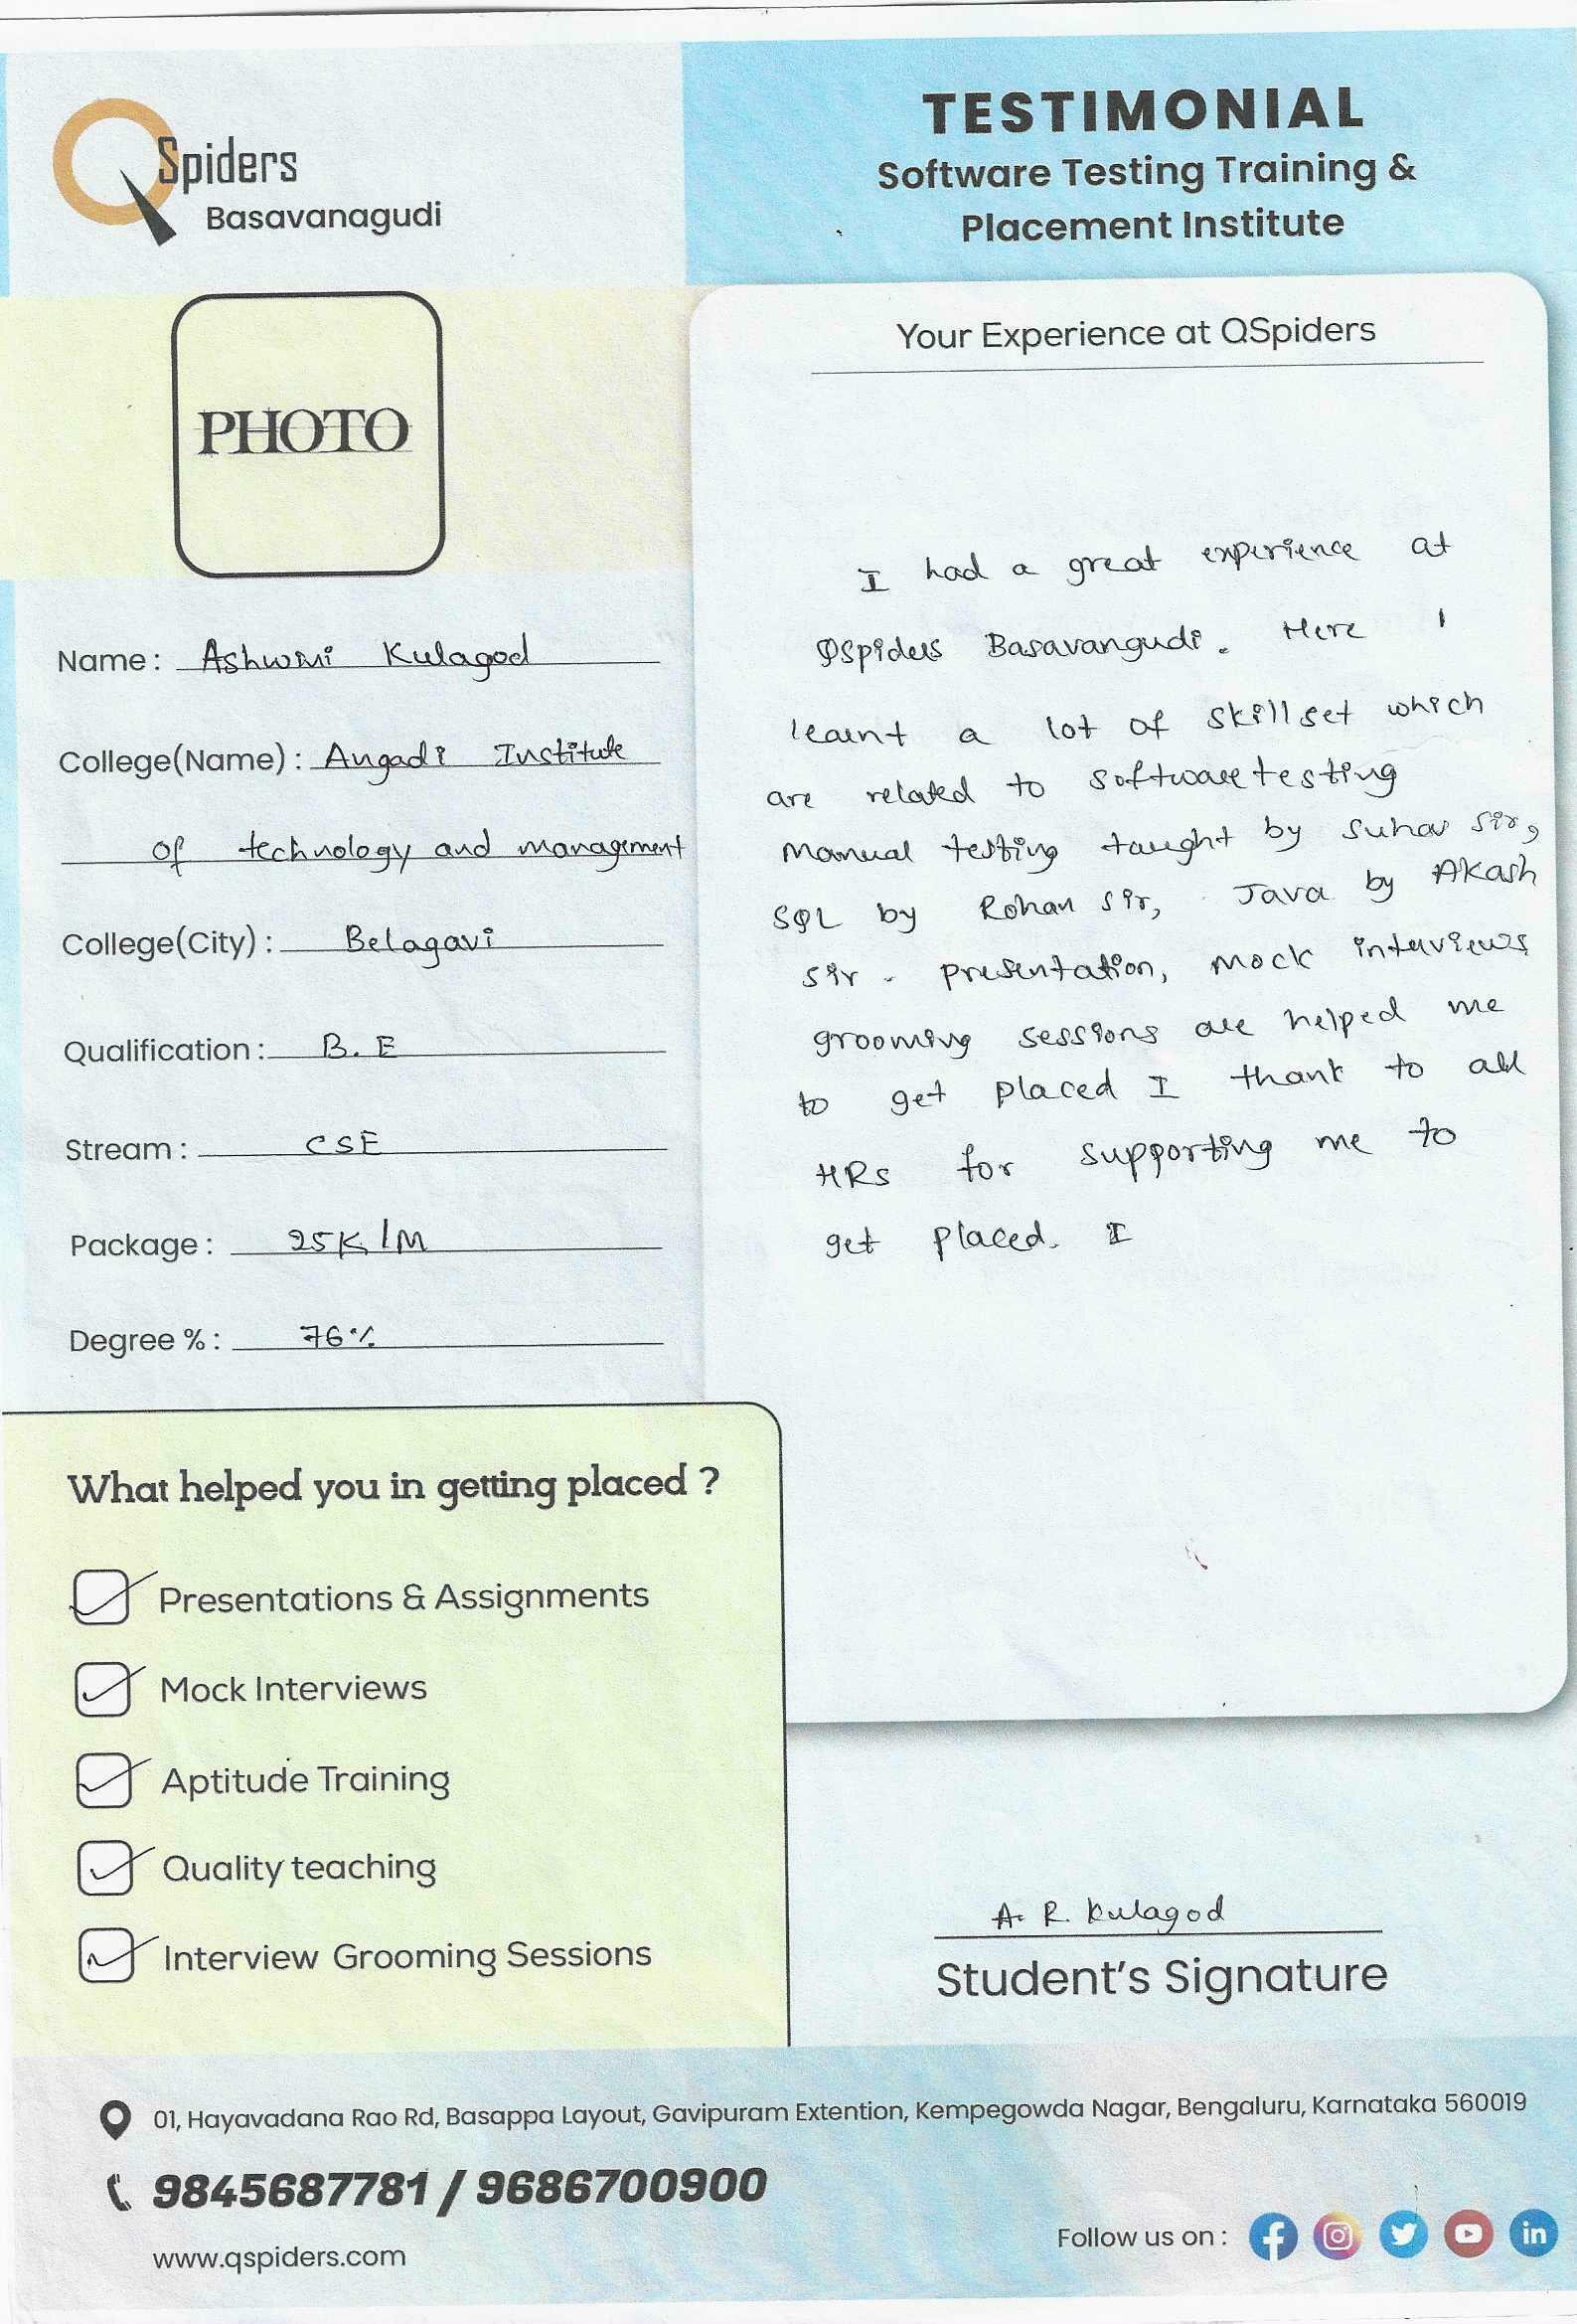 QSpiders
Basavanagudi
TESTIMONIAL
Software Testing Training &
Placement Institute
PHOTO
Name : Ashwini Kulagod
College(Name) : Angadi Institute
of technology and management
College(City) : Belagavi
Qualification : B.E
Stream : CSE
Package : 25K/M
Degree % : 76%
Your Experience at QSpiders
I had a great experience at
QSpiders Basavangudi. Here I
learnt a lot of skillset which
are related to softwaretesting
Manual testing taught by Suhas Sir,
SQL by Rohan Sir, Java by Akash
Sir. presentation, mock interviews
grooming sessions are helped me
to get placed I thank to all
HRs for supporting me to
get placed. I
What helped you in getting placed ?
Presentations & Assignments
Mock Interviews
Aptitude Training
Quality teaching
Interview Grooming Sessions
A. R. Kulagod
Student's Signature
01, Hayavadana Rao Rd, Basappa Layout, Gavipuram Extention, Kempegowda Nagar, Bengaluru, Karnataka 560019
9845687781 / 9686700900
www.qspiders.com
Follow us on :